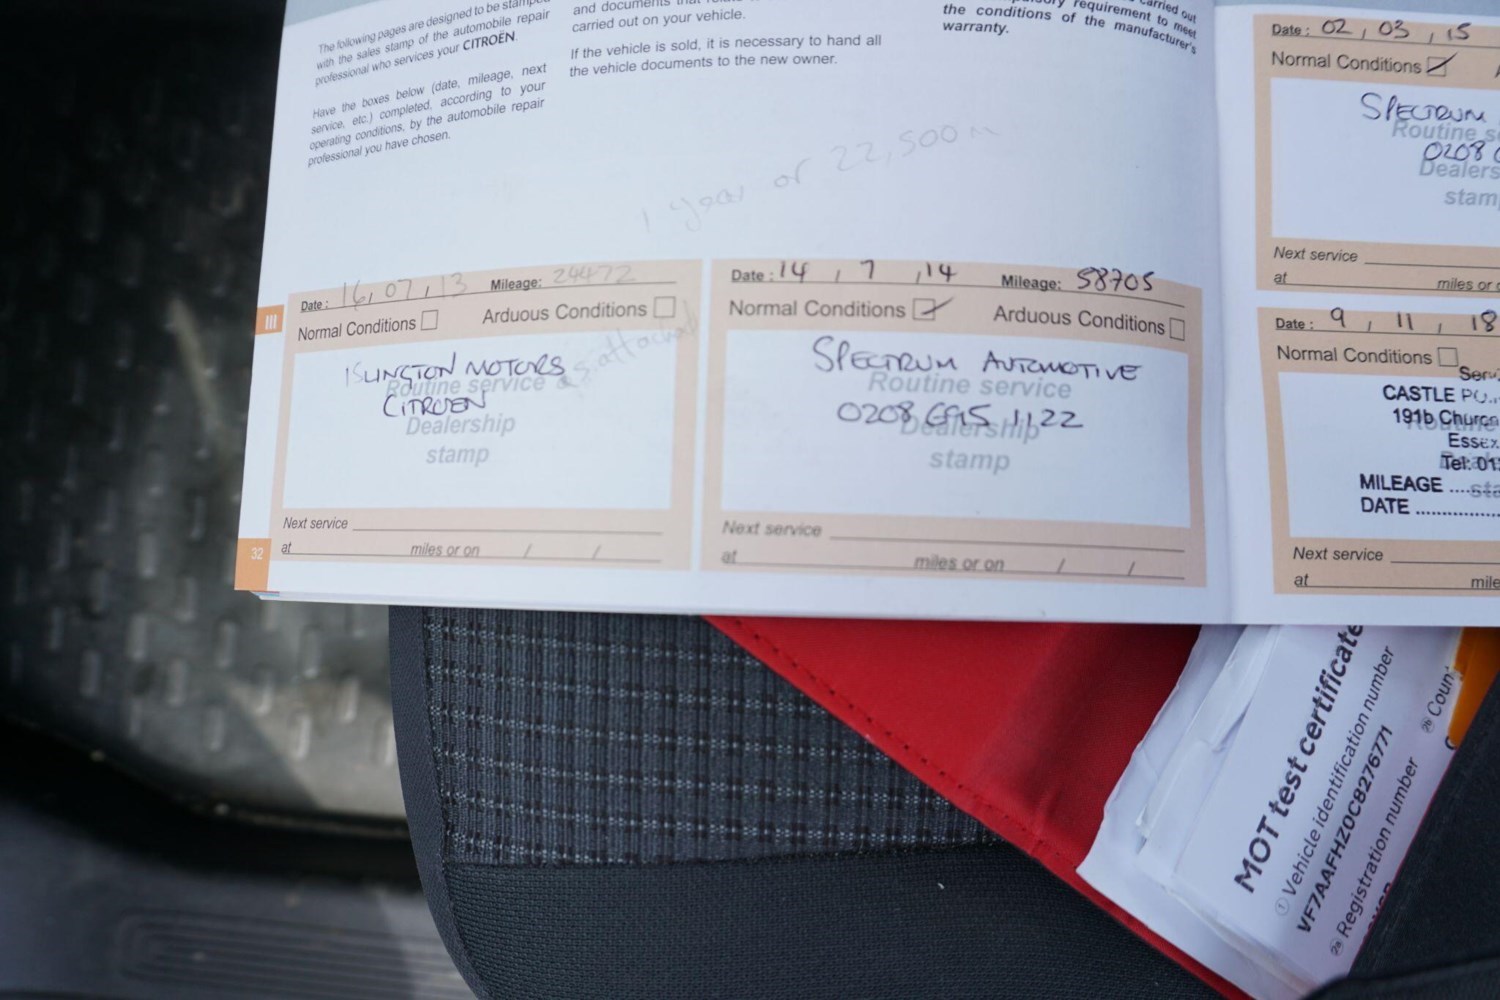 The following pages are designed to be stamped
with the sales stamp of the automobile repair
professional who services your CITROËN.
Have the boxes below (date, mileage, next
service, etc.) completed, according to your
operating conditions, by the automobile repair
professional you have chosen.
and documents that
carried out on your vehicle.
If the vehicle is sold, it is necessary to hand all
the vehicle documents to the new owner.
carried out
requirement to meet
the conditions of the manufacturer's
warranty.
1 year or 22,500 m
III
Date : 16, 07, 13 Mileage: 24472
Normal Conditions Arduous Conditions
as attached
ISLINGTON MOTORS
Routine service
CITROEN
Dealership
stamp
Next service
at miles or on / /
32
Date : 14 , 7 , 14 Mileage: 58705
Normal Conditions Arduous Conditions
SPECTRUM AUTOMOTIVE
Routine service
0208 6915 1122
Dealership
stamp
Next service
at miles or on / /
Date : 02 , 03 , 15
Normal Conditions
SPECTRUM
Routine s
0208
Dealers
stam
Next service
at miles or
Date : 9 , 11 , 18
Normal Conditions
CASTLE
191b Church
Essex
Tel: 01
MILEAGE ....
DATE ..............
Next service
at mile
MOT test certificate
1 Vehicle identification number
VF7AAFHZ0C8276771
2a Registration number
2b Coun